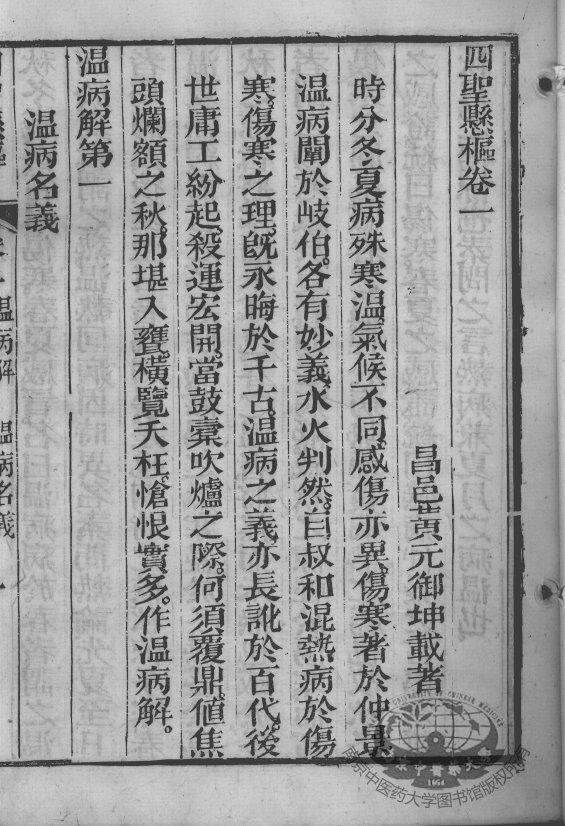 四聖懸樞卷一
昌邑黃元御坤載著
時分冬夏病殊寒溫氣候不同感傷亦異傷寒著於仲景
溫病闡於岐伯。各有妙義水火判然。自叔和混熱病於傷
寒。傷寒之理。旣永晦於千古。溫病之義亦長訛於百代。後
世庸工紛起。殺運宏開。當鼓橐吹爐之際。何須覆鼎。值焦
頭爛額之秋。那堪入甕。橫覽夭枉。愴恨實多。作溫病解。
溫病解第一
溫病名義
溫病解 溫病名義
南京中医药大学图书馆版权所有
1954